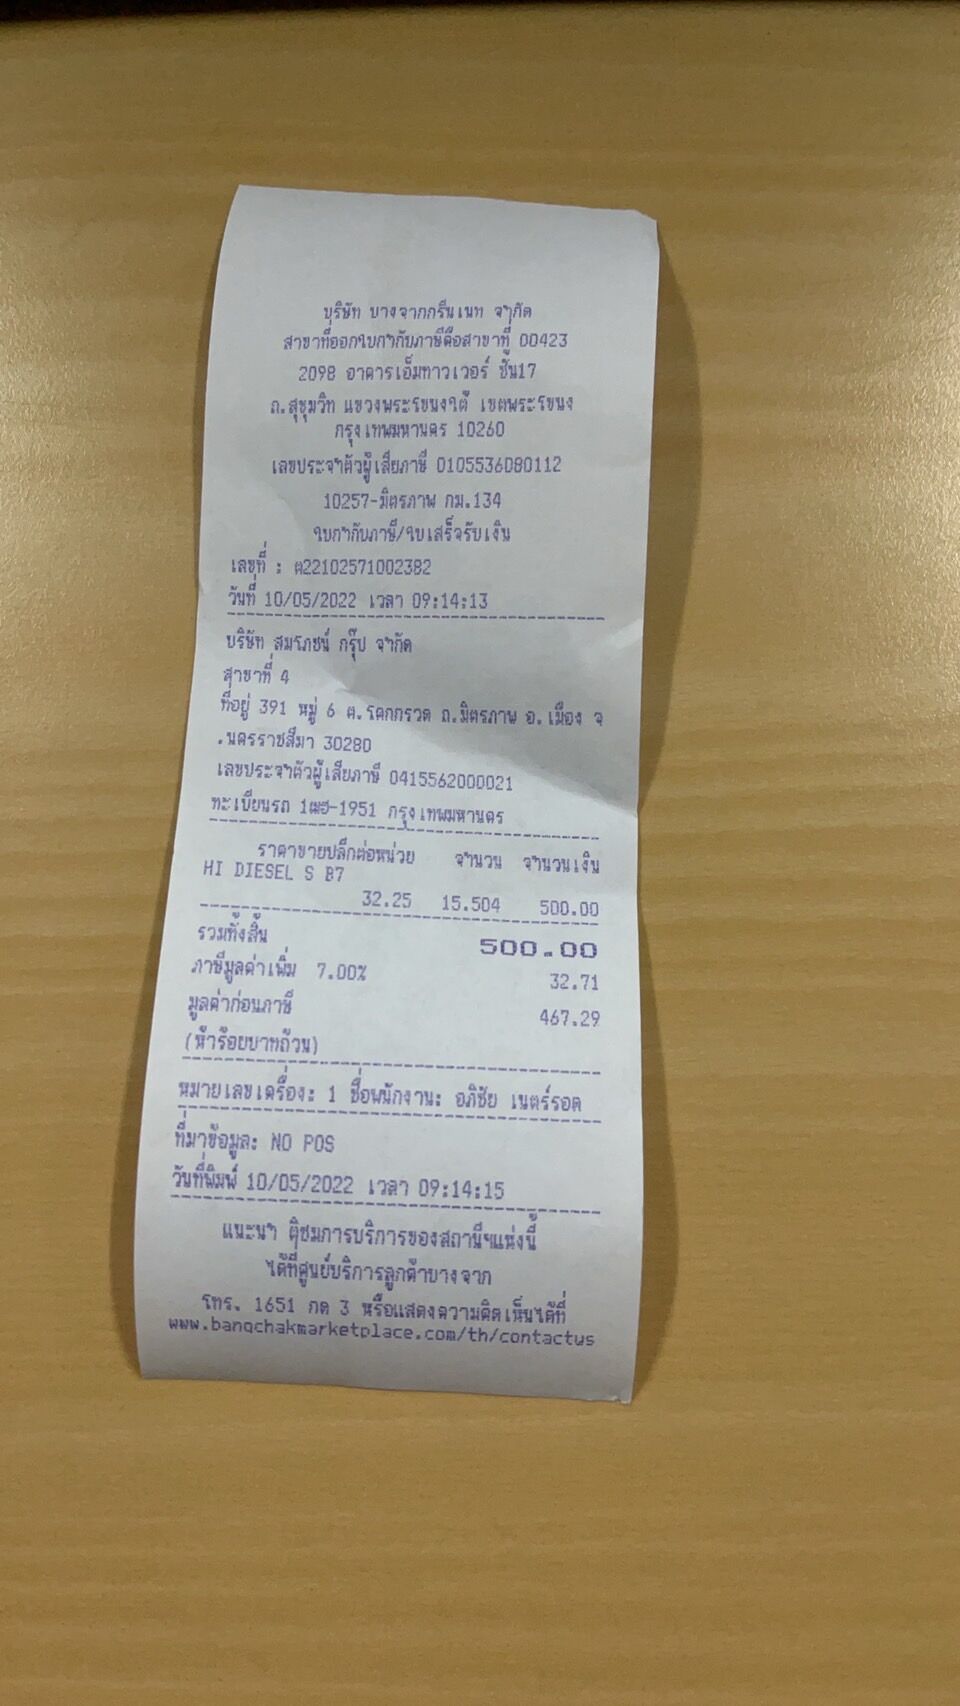 บริษัท บางจากกรีนเนท จำกัด
สาขาที่ออกใบกำกับภาษีคือสาขาที่ 00423
2098 อาคารเอ็มทาวเวอร์ ชั้น17
ถ.สุขุมวิท แขวงพระโขนงใต้ เขตพระโขนง
กรุงเทพมหานคร 10260
เลขประจำตัวผู้เสียภาษี 0105536080112
10257-มิตรภาพ กม.134
ใบกำกับภาษี/ใบเสร็จรับเงิน
เลขที่ : ต22102571002382
วันที่ 10/05/2022 เวลา 09:14:13
บริษัท สมโภชน์ กรุ๊ป จำกัด
สาขาที่ 4
ที่อยู่ 391 หมู่ 6 ต.โคกกรวด ถ.มิตรภาพ อ.เมือง จ
.นครราชสีมา 30280
เลขประจำตัวผู้เสียภาษี 0415562000021
ทะเบียนรถ -1951 กรุงเทพมหานคร
ราคาขายปลีกต่อหน่วย จำนวน จำนวนเงิน
HI DIESEL S B7
32.25 15.504 500.00
รวมทั้งสิ้น 500.00
ภาษีมูลค่าเพิ่ม 7.00% 32.71
มูลค่าก่อนภาษี 467.29
(ห้าร้อยบาทถ้วน)
หมายเลขเครื่อง: 1 ชื่อพนักงาน: อภิชัย เนตร์รอด
ที่มาข้อมูล: NO POS
วันที่พิมพ์ 10/05/2022 เวลา 09:14:15
แนะนำ ติชมการบริการของสถานีฯแห่งนี้
ได้ที่ศูนย์บริการลูกค้าบางจาก
โทร. 1651 กด 3 หรือแสดงความคิดเห็นได้ที่
www.bangchakmarketplace.com/th/contactus